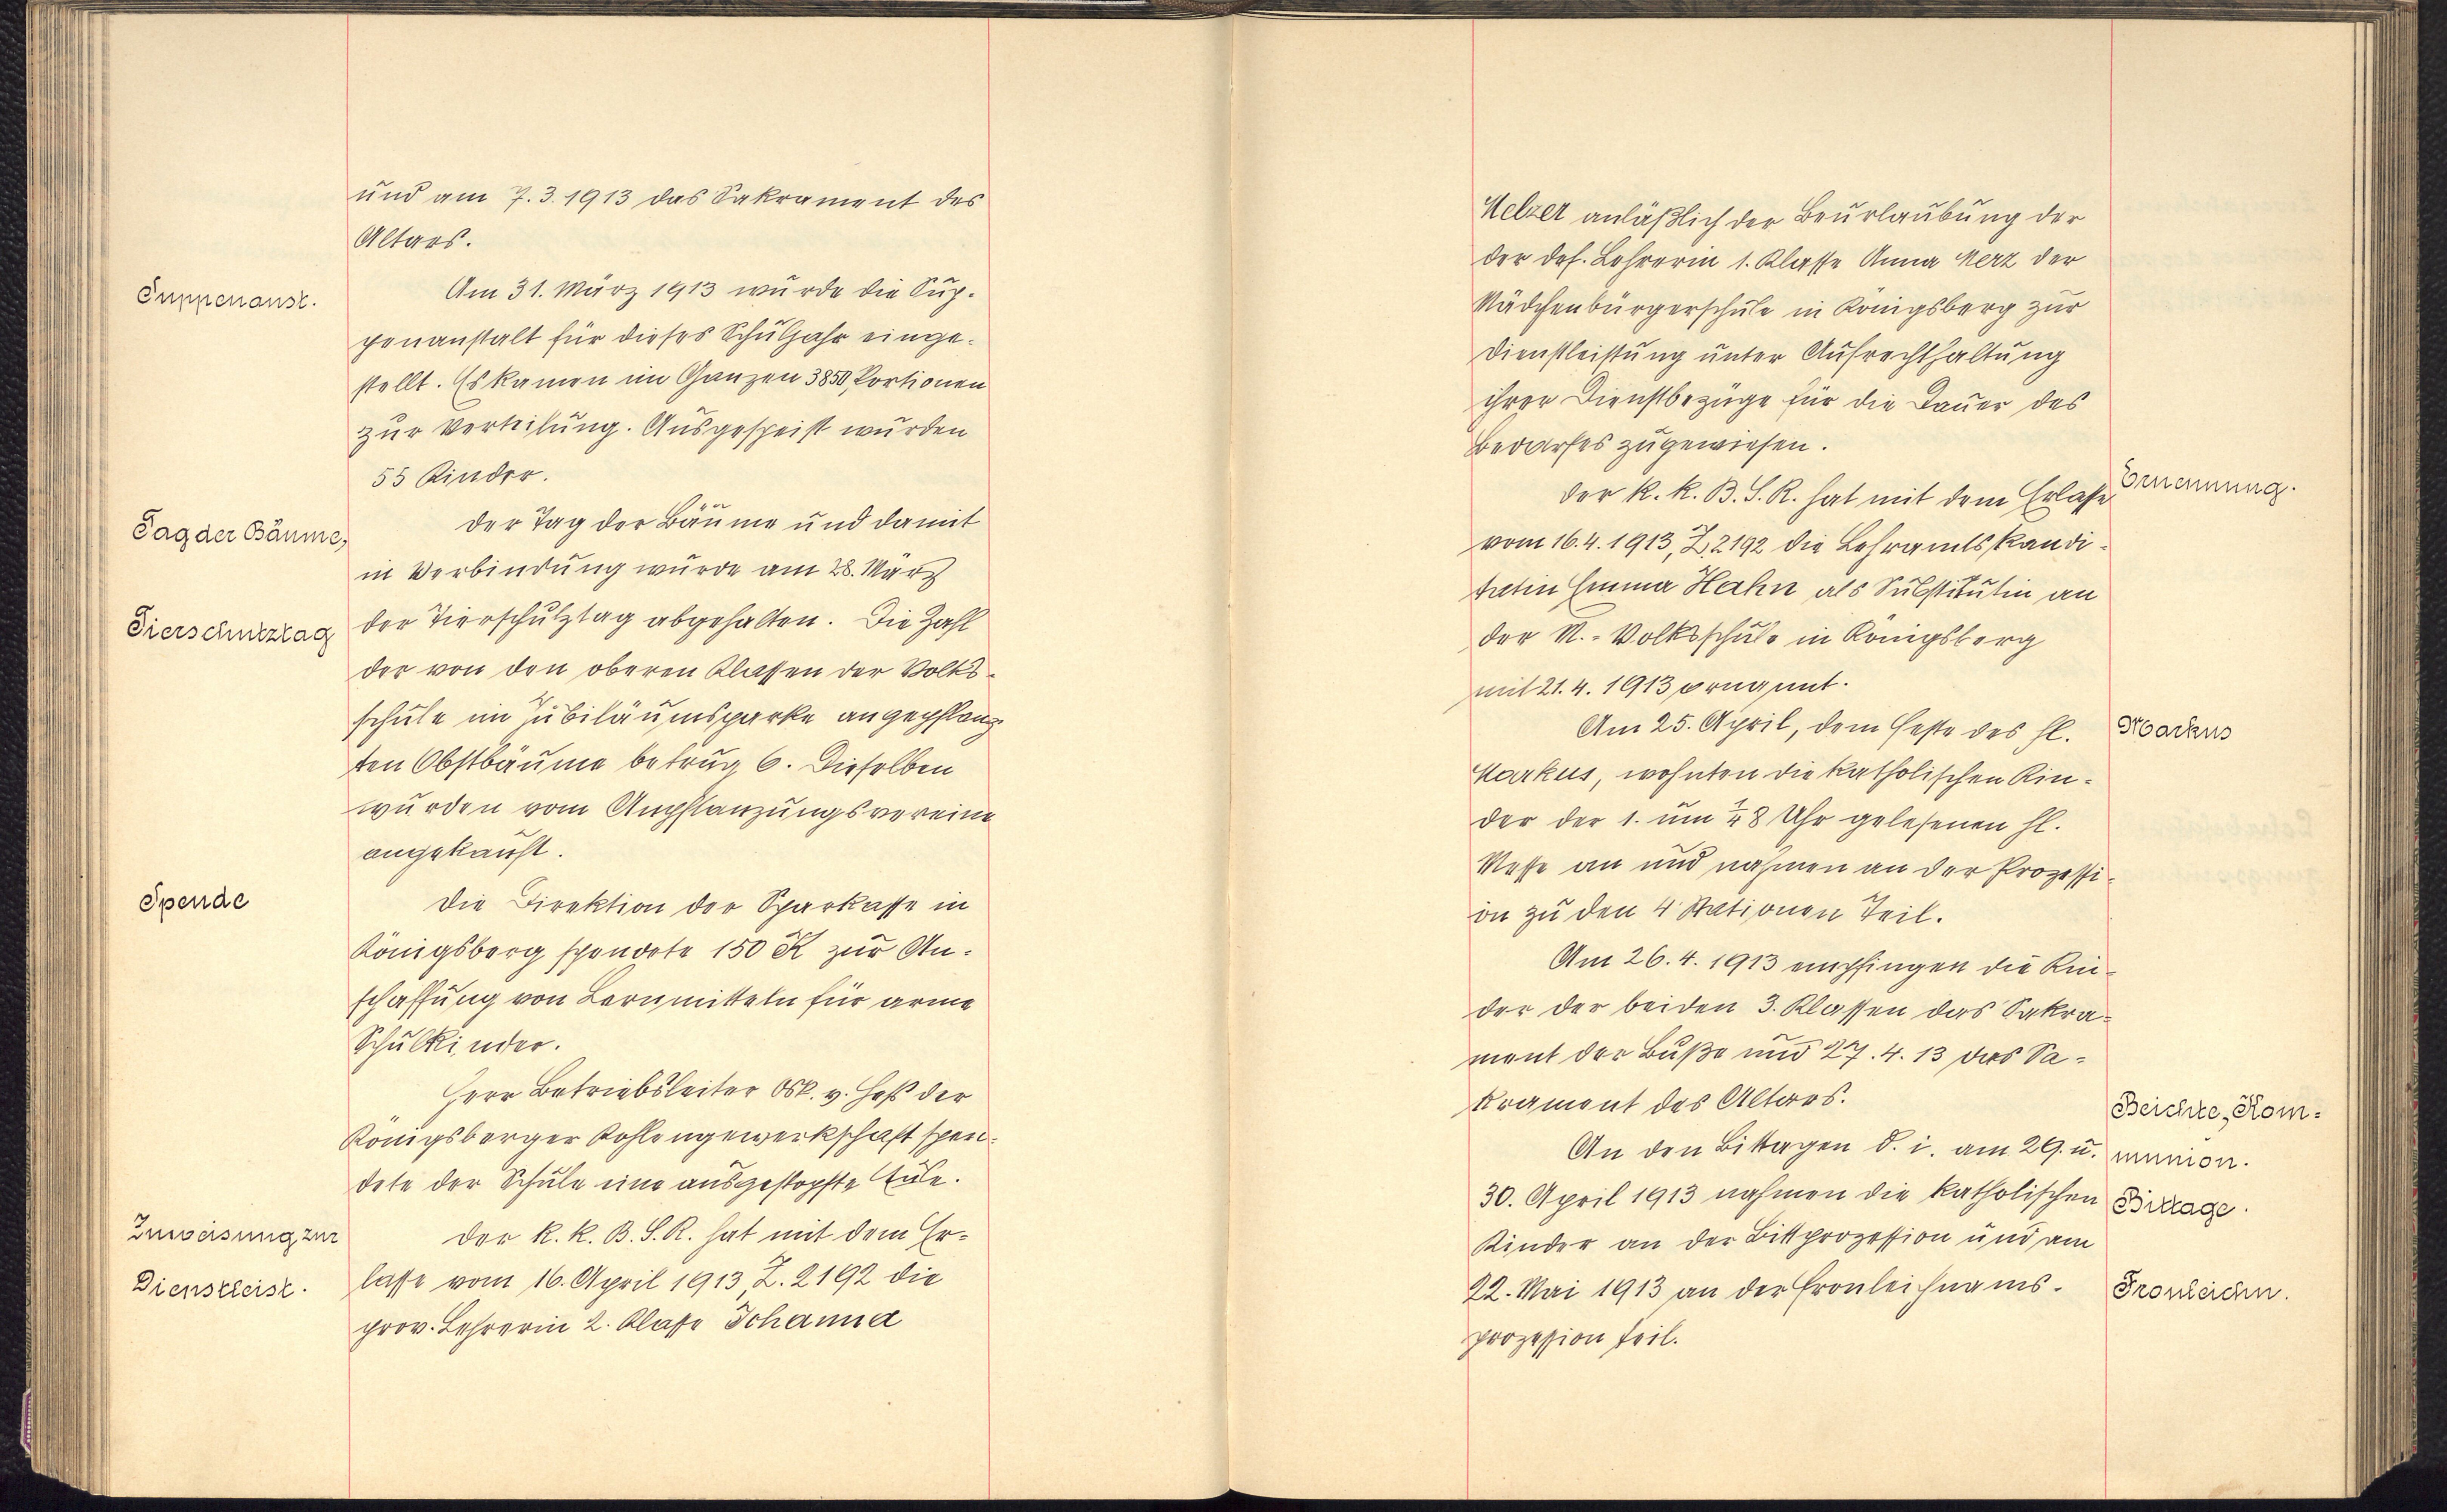 und am 7.3.1913 das Sakrament des
Altars.
Suppenanst.
Am 31. März 1913 wurde die Sup-
penanstalt für dieses Schuljahr einge-
stellt. Es kamen im Ganzen 3850 Portionen
zur Verteilung. Ausgespeist wurden
55 Kinder.
Tag der Bäume,
Der Tag der Bäume und damit
in Verbindung wurde am 28. März
Tierschutztag
der Tierschutztag abgehalten. Die Zahl
der von den oberen Klassen der Volks-
schule im Jubiläumsparke angepflanz-
ten Obstbäume betrug 6. Dieselben
wurden vom Anpflanzungsvereine
angekauft.
Spende
Die Direktion der Sparkasse in
Königsberg spendete 150 K zur An-
schaffung von Lernmitteln für arme
Schulkinder.
Herr Betriebsleiter Osk. v. Heß der
Königsberger Kohlengewerkschaft spen-
dete der Schule eine ausgestopfte Eule.
Zuweisung zur
Der k. k. B. S. R. hat mit dem Er-
Dienstleist.
lasse vom 16. April 1913, Z. 2192 die
prov. Lehrerin 2. Klasse Johanna
Melzer anläßlich der Beurlaubung der
der def. Lehrerin 1. Klasse Anna Merz der
Mädchenbürgerschule in Königsberg zur
Dienstleistung unter Aufrechthaltung
ihrer Dienstbezüge für die Dauer des
Bedarfes zugewiesen.
Der k. k. B. S. R. hat mit dem Erlasse
Ernennung.
vom 16.4.1913, Z. 2192 die Lehramtskandi-
datin Emma Hahn als Substitutin an
der M.-Volksschule in Königsberg
mit 21.4.1913 ernannt.
Am 25. April, dem Feste des hl.
Markus
Markus, wohnten die katholischen Kin-
der der 1. um ¼8 Uhr gelesenen hl.
Messe an und nahmen an der Prozessi-
on zu den 4 Stationen Teil.
Am 26.4.1913 empfingen die Kin-
der der beiden 3. Klassen das Sakra-
ment der Buße und 27.4.13 das Sa-
krament des Altars.
Beichte, Kom-
An den Bittagen d. i. am 29. u.
munion.
30. April 1913 nahmen die katholischen
Bittage.
Kinder an der Bittprozession und am
22. Mai 1913 an der Fronleichnams-
Fronleichn.
prozession teil.